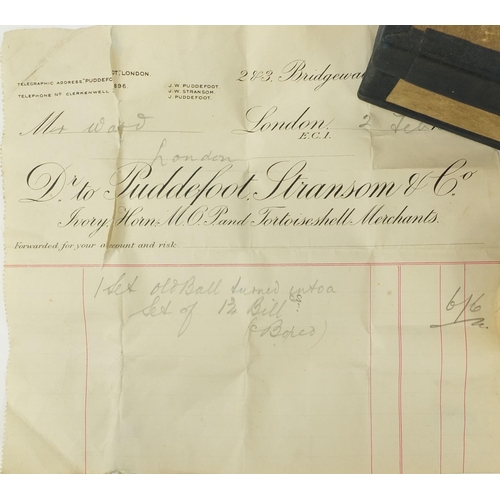 TELEGRAPHIC ADDRESS "PUDDEFOOT," LONDON.
TELEPHONE No. CLERKENWELL 896
J. W. PUDDEFOOT
J. W. STRANSOM
J. PUDDEFOOT
2 & 3, Bridgewa
Mr Ward
London 2
E.C.1.
London
Dr. to Puddefoot, Stransom & Co
Ivory, Horn, M.O.P. and Tortoiseshell Merchants.
Forwarded for your account and risk.
1 Set old Ball turned into a
Set of 12 Bill
(Bored)
6/6